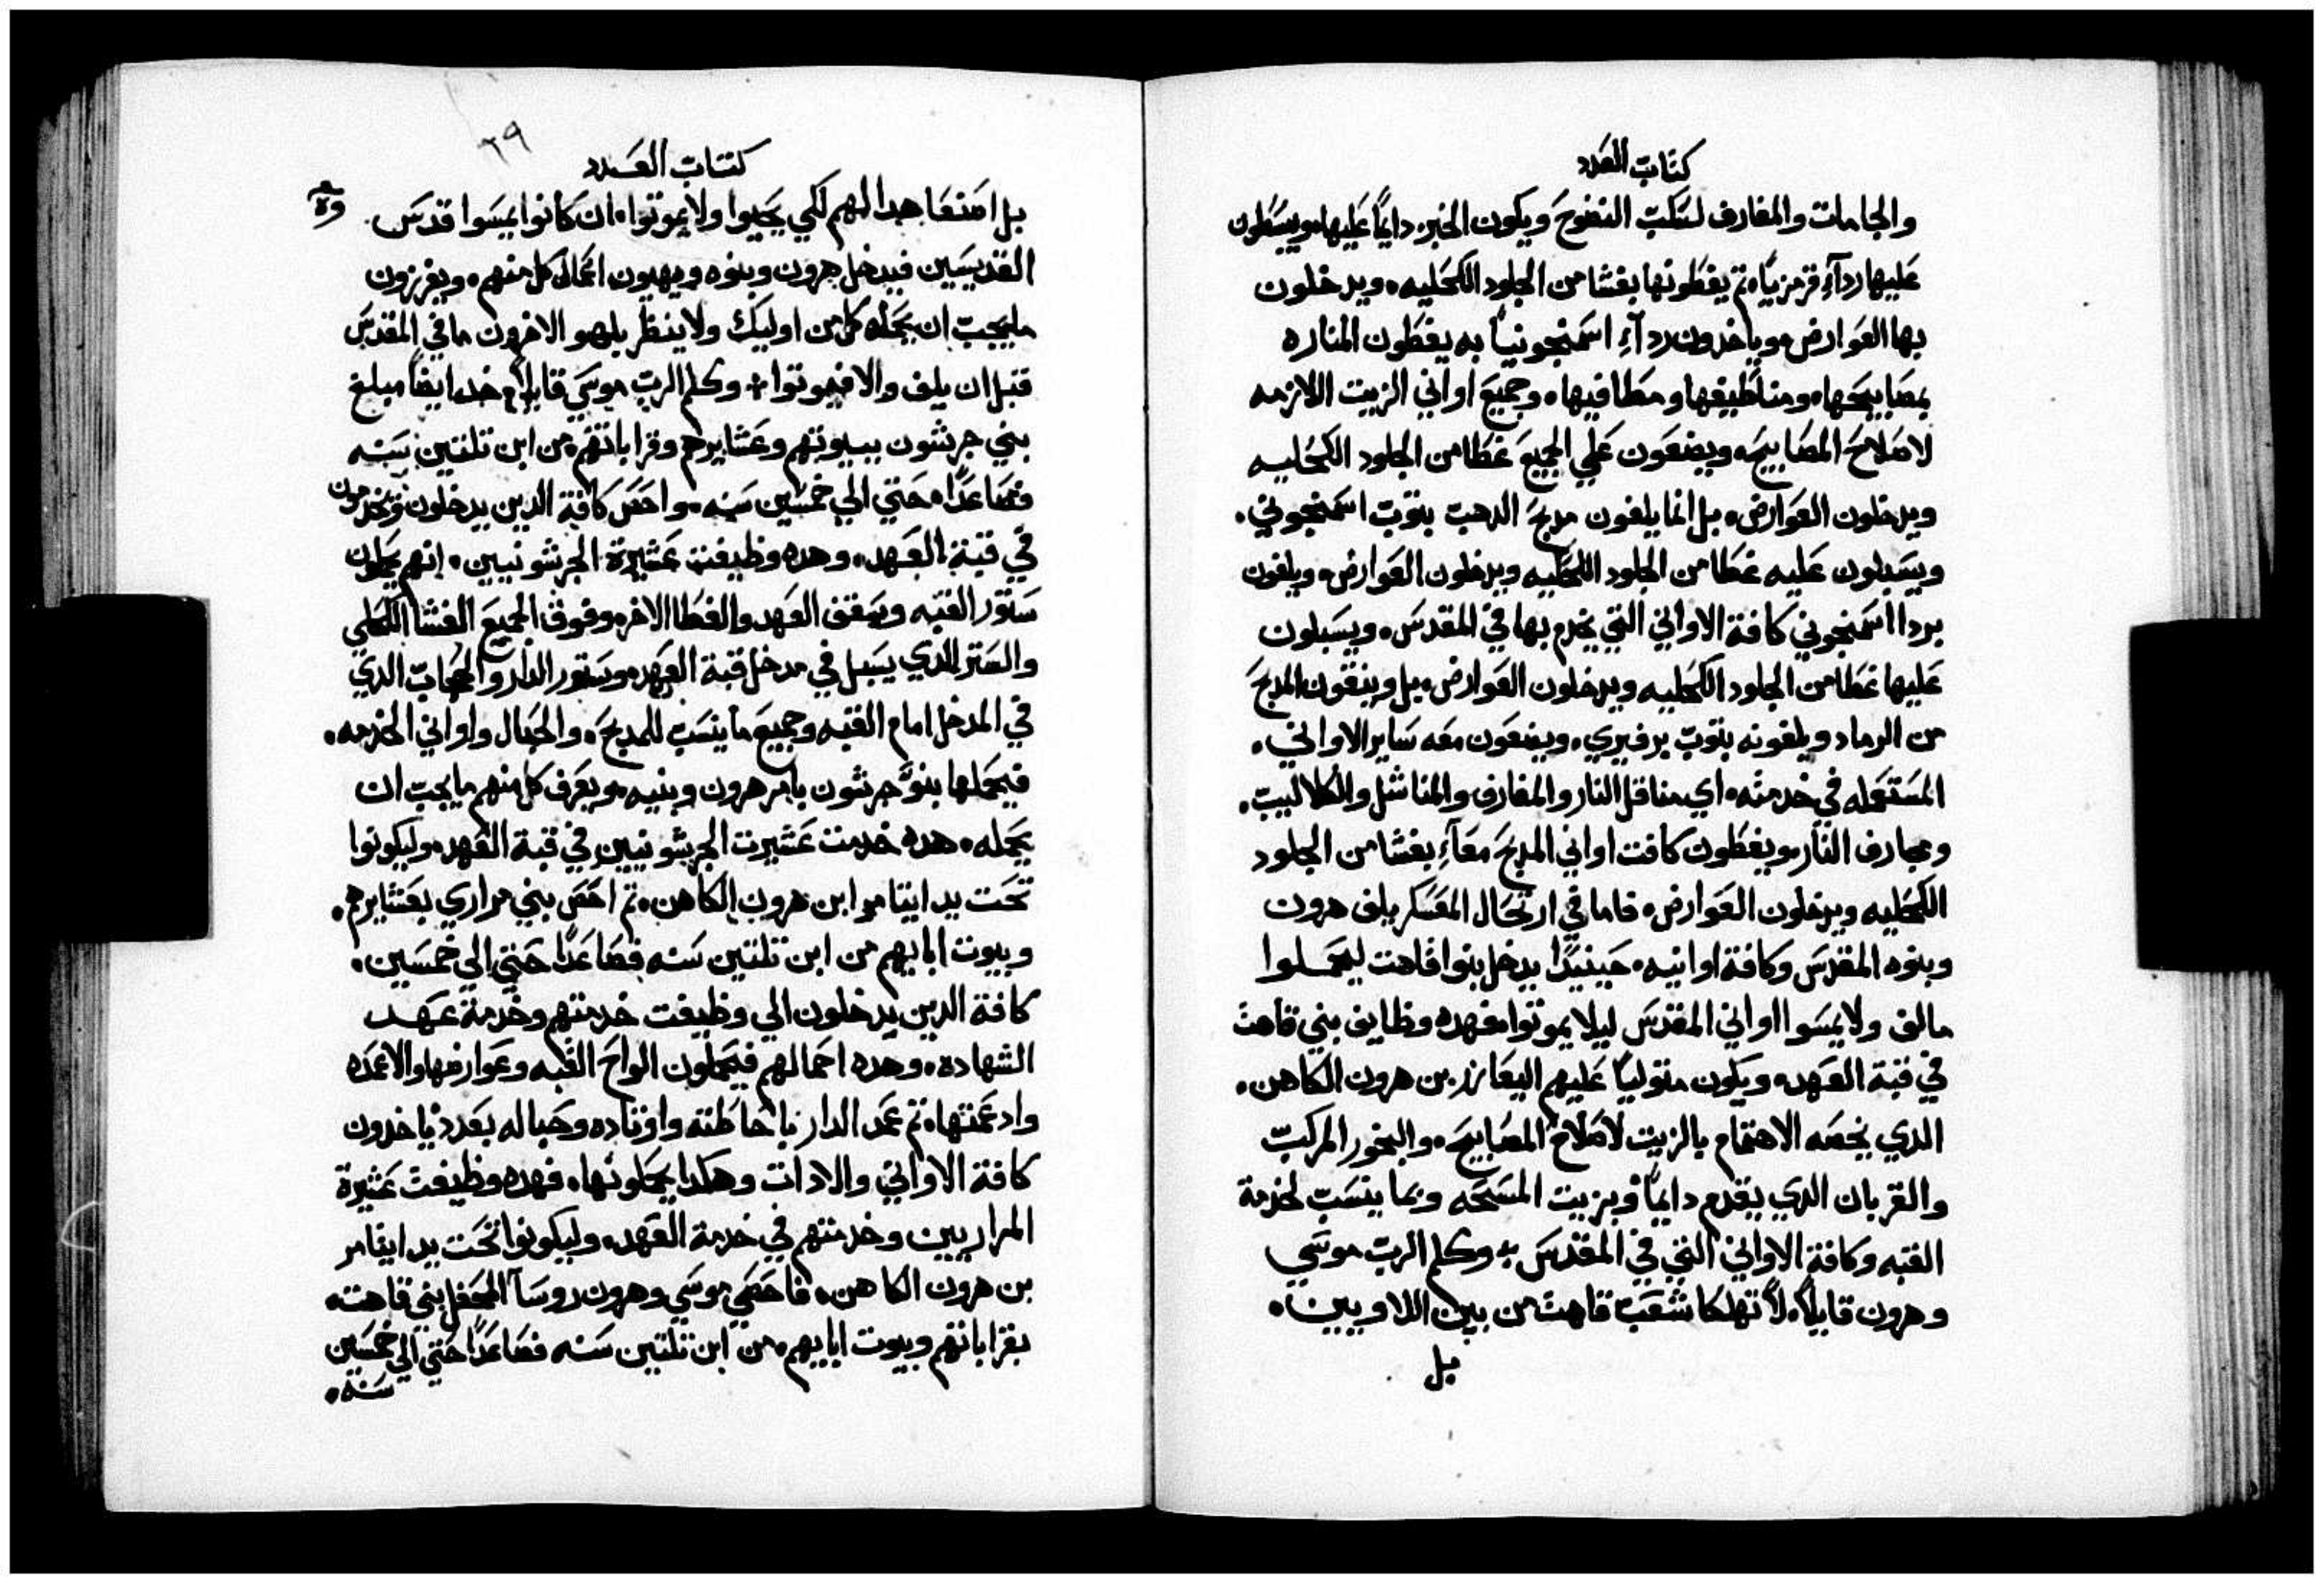 كتاب العدد
والجامات والمغارف لسكب النضوح ويكون الخبز دايماً عليها ويبسطون
عليها ردآءِ قرمزياً، تم يغطونها بغشا من الجلود الكحليه، ويدخلون
بها العوارض، وياخدون ردآءِ اسمنجونياً به يغطون المناره
بمصابيحها، ومناطيفها ومطافيها، وجميع اواني الزيت اللازمه
لاصلاح المصابيح، ويضعون علي الجميع غطا من الجلود الكحليه
ويدخلون العوارض، بل انما يلفون مدبح الدهب بتوب اسمنجوني،
ويسبلون عليه غطا من الجلود الكحليه ويدخلون العوارض، ويلفون
بردا اسمنجوني كافة الاواني التي يخدم بها في المقدس، ويسبلون
عليها غطا من الجلود الكحليه ويدخلون العوارض، بل وينقون المدبح
من الرماد ويلفونه بتوب برفيري، ويضعون معه ساير الاواني،
المستعمله في خدمته، اي مناقل النار والمغارف والمناشل والكلاليب،
ومجارف النار، ويغطون كافت اواني المدبح معآءِ بغشا من الجلود
الكحليه ويدخلون العوارض، فاما في ارتحال المعسكر يلف هرون
وبنوه المقدس وكافة اوانيه، حينيدًا يدخل بنوا قاهت ليحملوا
مالف ولا يمسوا اواني المقدس ليلا يموتوا، فهده وظايف بني قاهت
في قبة العهد، ويكون متولياً عليهم اليعازر بن هرون الكاهن،
الدي يخصه الاهتمام بالزيت لاصلاح المصابيح، والبخور المركب
والقربان الدي يقدم دايماً وبزيت المسحه وبما ينسب لخدمة
القبه وكافة الاواني التي في المقدس ܀ وكلم الرب موسي
وهرون قايلاً، لا تهلكا شعب قاهت من بين اللاويين،
بل
٢٩
كتاب العدد
بل امنعا هدا لهم لكي يحيوا ولا يموتوا، ان كانوا يمسوا قدس
القديسين فيدخل هرون وبنوه ويهيون اعمال كل منهم، ويفرزون
ما يجب ان يحمله كل من اوليك ولا ينظر بلهو الاخرون ما في المقدس
قبل ان يلف والا فيموتوا ܀ وكلم الرب موسي قايلاً، خد ايضاً مبلغ
بني جرشون ببيوتهم وعشايرهم وقراباتهم، من ابن تلتين سنه
فصاعدًا، حتي الي خمسين سنه، واحص كافة الدين يدخلون ويخدمون
في قبة العهد، وهده وظيفة عشيرة الجرشونيين، انهم يحملون
ستور القبه وسقف العهد والغطا الاخر وفوق الجميع الغشا الكحلي
والستر الدي يسبل في مدخل قبة العهد، وستور الدار والحجاب الدي
في المدخل امام القبه وجميع ما ينسب للمدبح، والحبال واواني الخدمه،
فيحملها بنو جرشون بامر هرون وبنيه، ويعرف كل منهم ما يجب ان
يحمله، هده خدمت عشيرت الجرشونيين في قبة العهد، وليكونوا
تحت يد ايتامر ابن هرون الكاهن، تم احص بني مراري بعشايرهم،
وبيوت ابايهم من ابن تلتين سنه فصاعدًا حتي الي خمسين،
كافة الدين يدخلون الي وظيفت خدمتهم وخدمة عهد
الشهاده، وهده احمالهم فيحملون الواح القبه وعوارضها والاعمده
وادعمتها، تم عمد الدار باحاطته واوتاده وحباله بعدد ياخدون
كافة الاواني والادات وهكدا يحملونها، فهده وظيفت عشيرة
المراريين وخدمتهم في خدمة العهد، وليكونوا تحت يد ايتامر
بن هرون الكاهن، فاحصي موسي وهرون روسآ المحفل بني قاهت،
بقراباتهم وبيوت ابايهم، من ابن تلتين سنه فصاعدًا حتي الي خمسين
سنه،